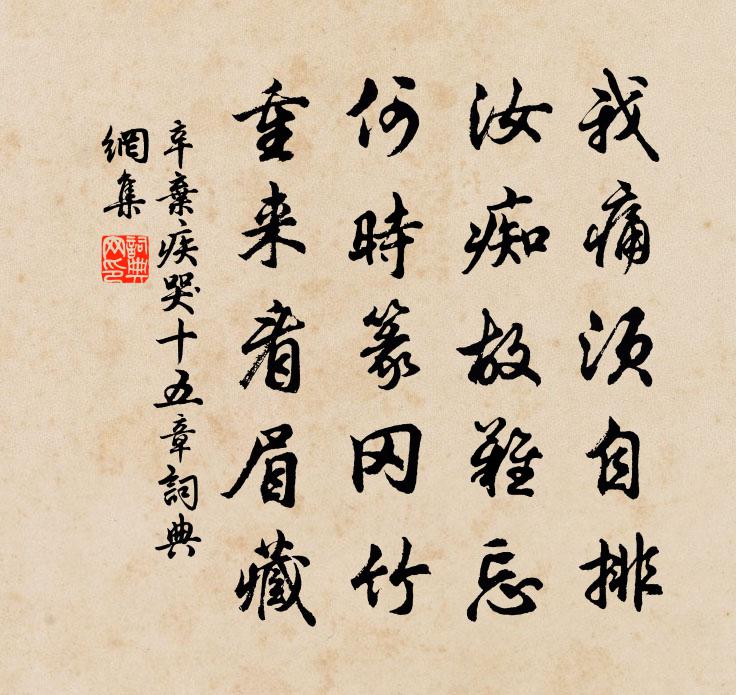 我痛須自排
汝痴故難忘
何時篆冈竹
重来看眉藏
辛棄疾哭十五章詞典
網集
詞典
网印